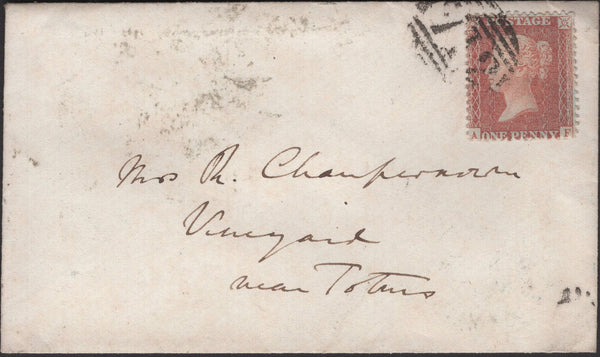 POSTAGE
A ONE PENNY F
Mrs R. Champernowne
Vineyard
near Totnes